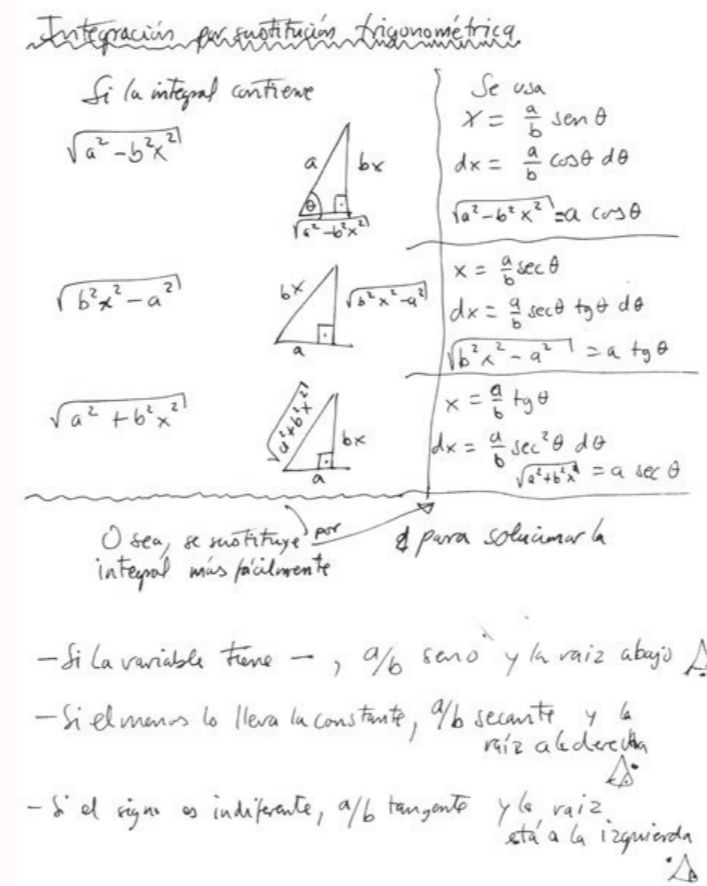 Integración por sustitución trigonométrica
Si la integral contiene
Se usa
√(a² - b²x²)
a
bx
θ
√(a² - b²x²)
x = a/b sen θ
dx = a/b cosθ dθ
√(a² - b²x²) = a cosθ
√(b²x² - a²)
bx
√(b²x² - a²)
a
x = a/b secθ
dx = a/b secθ tgθ dθ
√(b²x² - a²) = a tgθ
√(a² + b²x²)
√(a² + b²x²)
bx
a
x = a/b tgθ
dx = a/b sec²θ dθ
√(a² + b²x²) = a sec θ
O sea, se sustituye por para solucionar la
integral más fácilmente
- Si la variable tiene -, a/b seno y la raiz abajo
- Si el menos lo lleva la constante, a/b secante y la
raíz a la derecha
- Si el signo es indiferente, a/b tangente y la raiz
está a la izquierda